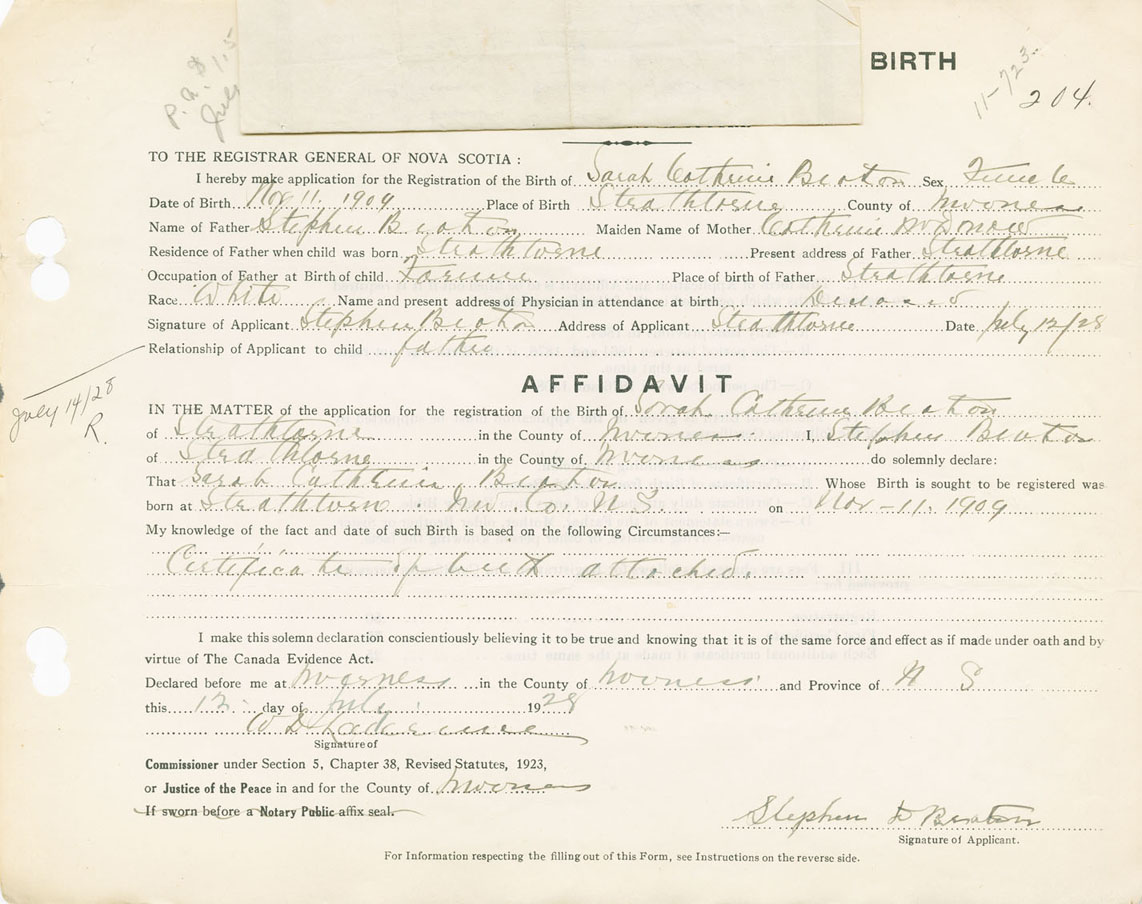 BIRTH
11-723
204.
P.a. $1.5
July
TO THE REGISTRAR GENERAL OF NOVA SCOTIA :
I hereby make application for the Registration of the Birth of Sarah Catherine Beaton Sex Female
Date of Birth Nov 11, 1909 Place of Birth Strathlorne County of Inverness
Name of Father Stephen Beaton Maiden Name of Mother Catherine
Residence of Father when child was born Strathlorne Present address of Father Strathlorne
Occupation of Father at Birth of child Farmer Place of birth of Father Strathlorne
Race White Name and present address of Physician in attendance at birth Deceased
Signature of Applicant Stephen Beaton Address of Applicant Strathlorne Date July 12/28
Relationship of Applicant to child father
July 14/28
R.
AFFIDAVIT
IN THE MATTER of the application for the registration of the Birth of Sarah Catherine Beaton
of Strathlorne in the County of Inverness I, Stephen Beaton
of Strathlorne in the County of Inverness do solemnly declare:
That Sarah Catherine Beaton Whose Birth is sought to be registered was
born at Strathlorne Inv. Co. N.S. on Nov - 11. 1909
My knowledge of the fact and date of such Birth is based on the following Circumstances:—
Certificate of birth attached.
I make this solemn declaration conscientiously believing it to be true and knowing that it is of the same force and effect as if made under oath and by
virtue of The Canada Evidence Act.
Declared before me at Inverness in the County of Inverness and Province of N S
this 12 day of July 1928
W D
Signature of
Commissioner under Section 5, Chapter 38, Revised Statutes, 1923,
or Justice of the Peace in and for the County of Inverness
If sworn before a Notary Public affix seal.
Stephen D Beaton
Signature of Applicant.
For Information respecting the filling out of this Form, see Instructions on the reverse side.